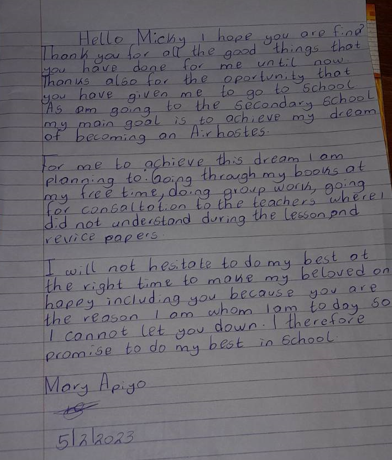 Hello Micky I hope you are fine?
Thank you for all the good things that
you have done for me until now
Thanus also for the oportunity that
you have given me to go to School
As am going to the Secondary School
my main goal is to achieve my dream
of becoming an Air hostes.
For me to achieve this dream I am
planning to: Going through my books at
my free time, doing group work, going
for consoltation to the teachers where I
did not understand during the lesson and
revice papers
I will not hesitate to do my best at
the right time to make my beloved on
happy including you because you are
the reason I am whom I am to day so
I cannot let you down. I therefore
promise to do my best in School
Mary Apiyo
5/2/2023